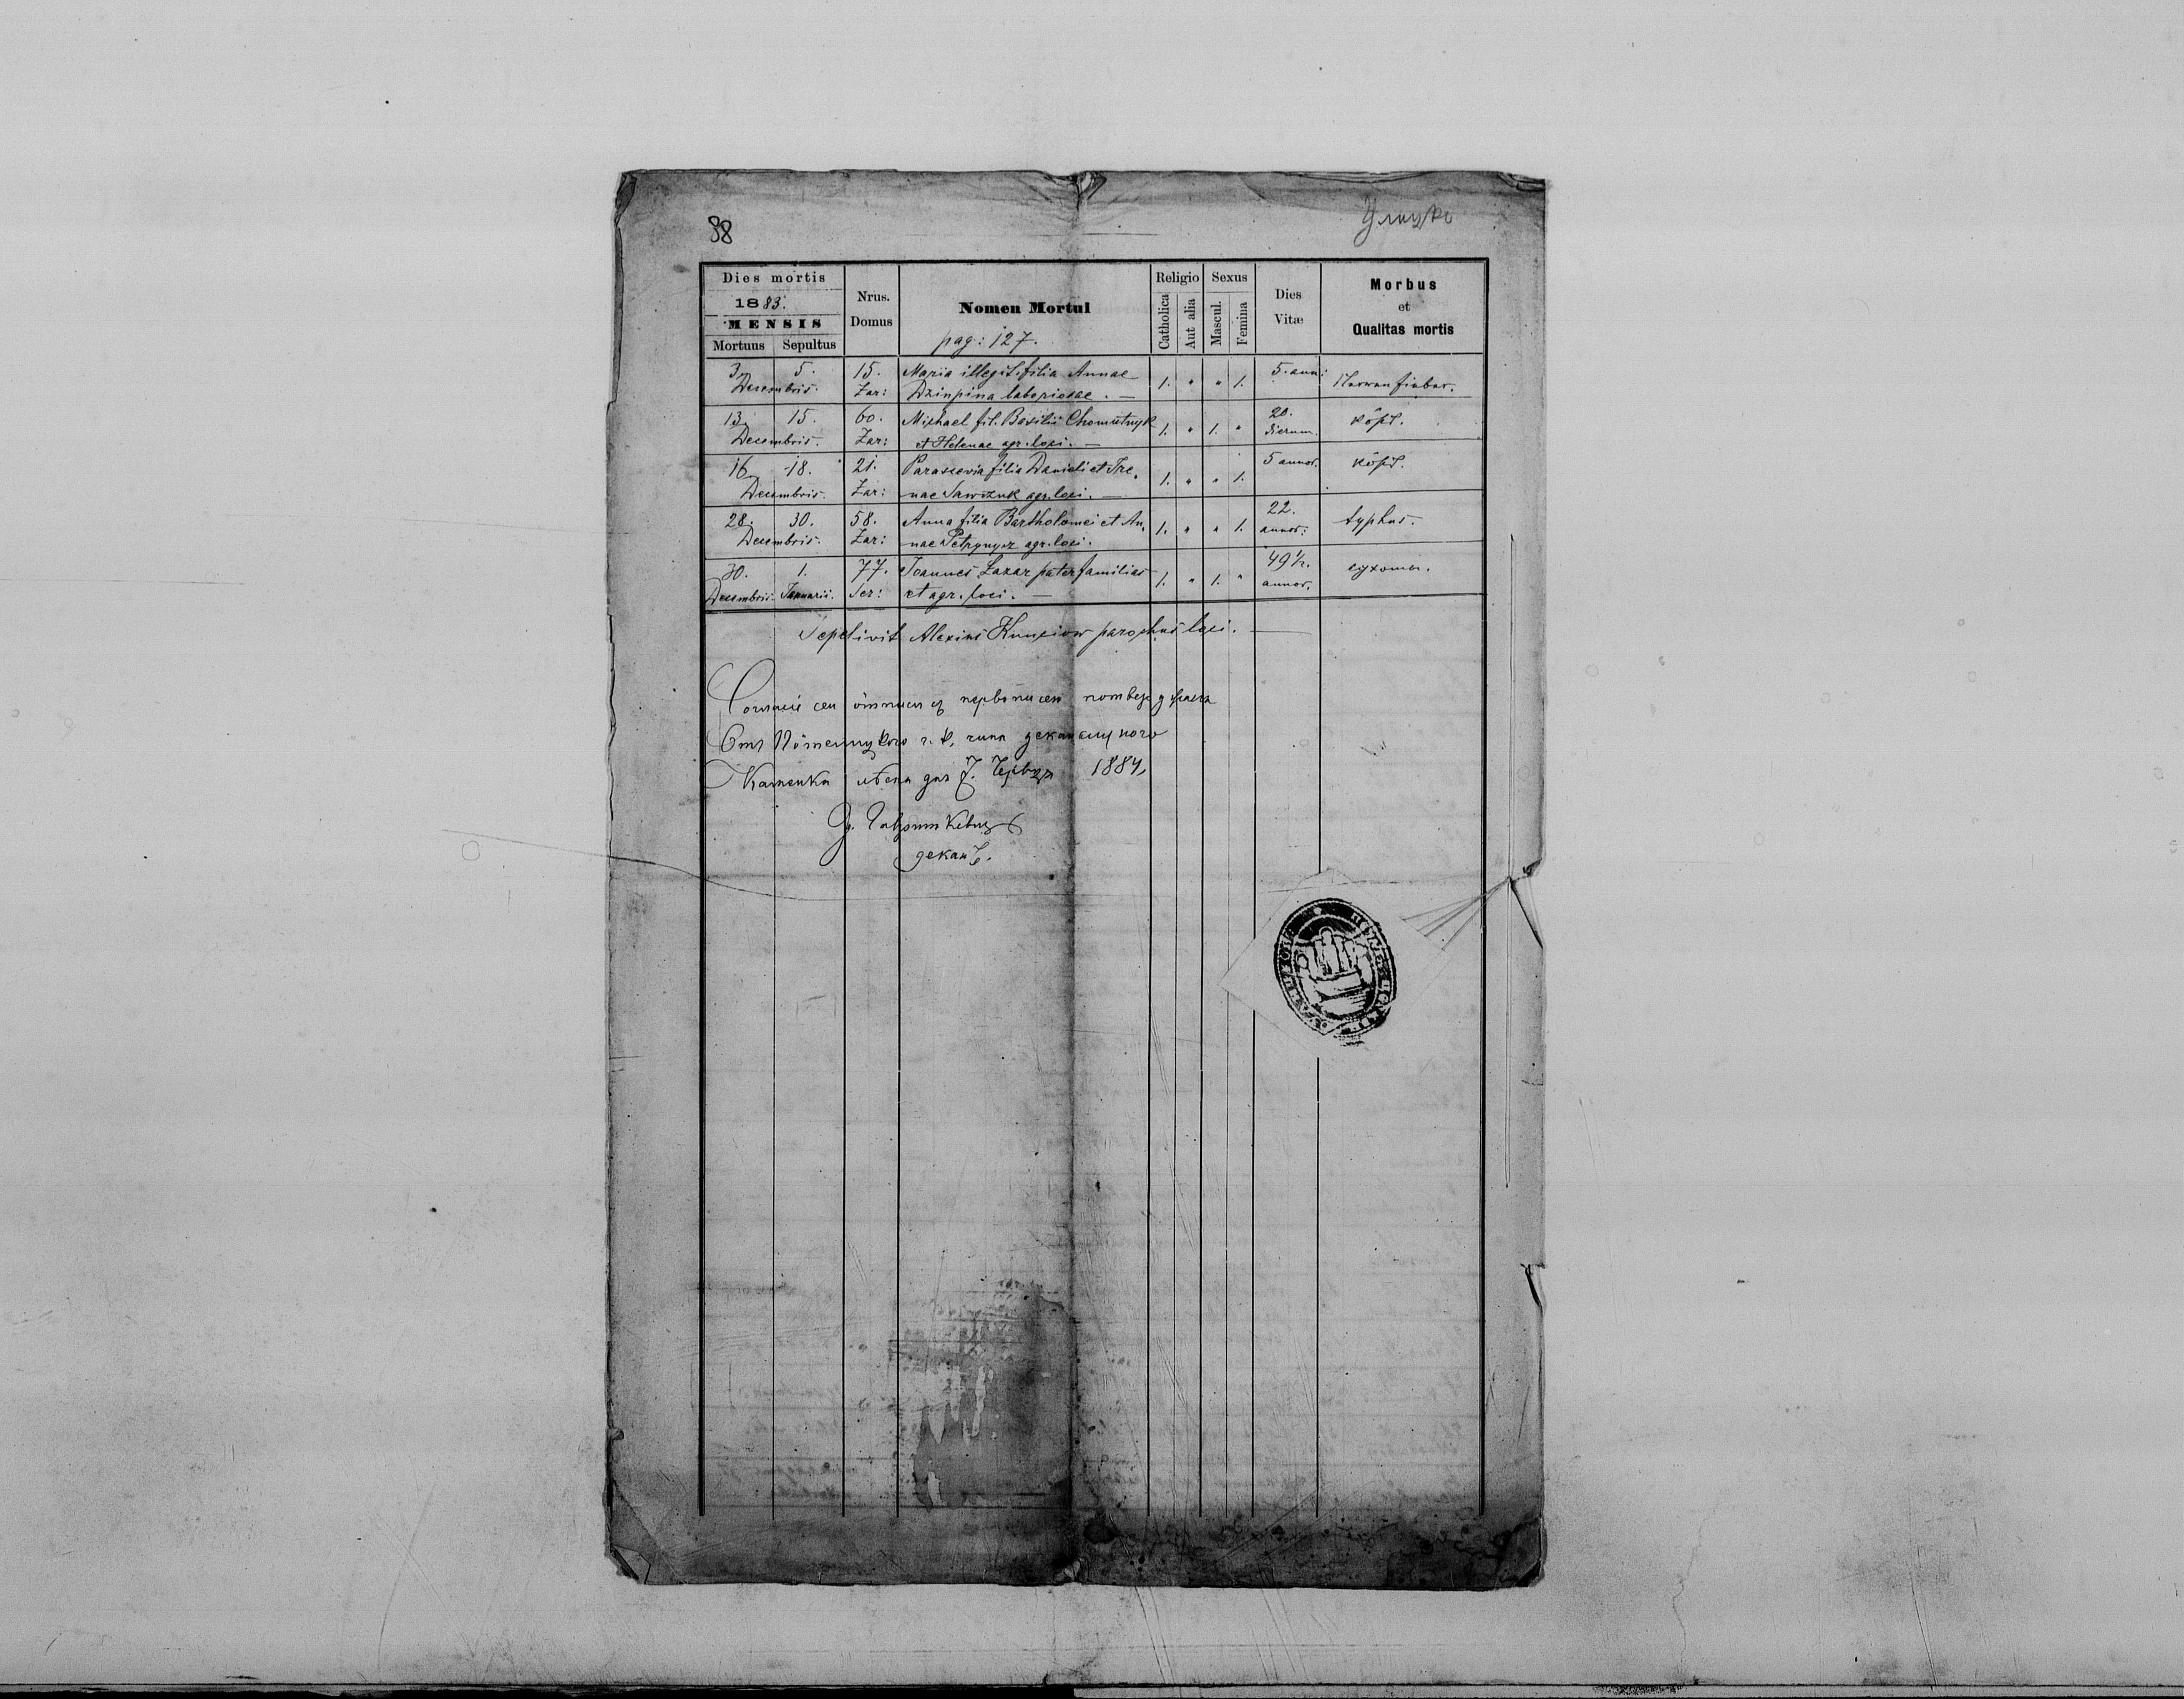 88
Улицко
Dies mortis
1883.
MENSIS
Mortuus Sepultus
Nrus. Domus
Nomen Mortui
pag: 127.
Religio
Catholica Aut alia
Sexus
Mascul. Femina
Dies Vitæ
Morbus
et
Qualitas mortis
3. 5. 15. Maria illegit. filia Annae 1. " " 1. 5. ann:
Decembris. Zar: Dzinpina laboriosae. —
13. 15. 60. Michael fil. Basilii Chomutnyk 1. " 1. " 20. кôръ.
Decembris. Zar: et Helenae agr. loci. — dierum.
16. 18. 21. Parascevia filia Danieli et Ire 1. " " 1. 5 annor. кôръ.
Decembris. Zar: nae Sawczuk agr. loci. —
28. 30. 58. Anna filia Bartholomei et An, 1. " " 1. 22. typhus.
Decembris. Zar: nae agr. loci. annor:
30. 1. 77. Joannes Lazar pater familias 1. " 1. " 49 1/2. сухоты.
Decembris. Januarii. Ser: et agr. loci. — annor.
Sepelivit Alexius parochus loci. —
сеи ôтписи съ первописею потверджаеся
Отъ г. к. чина деканального
Каменка дня 7. Червця 1884,
деканъ.